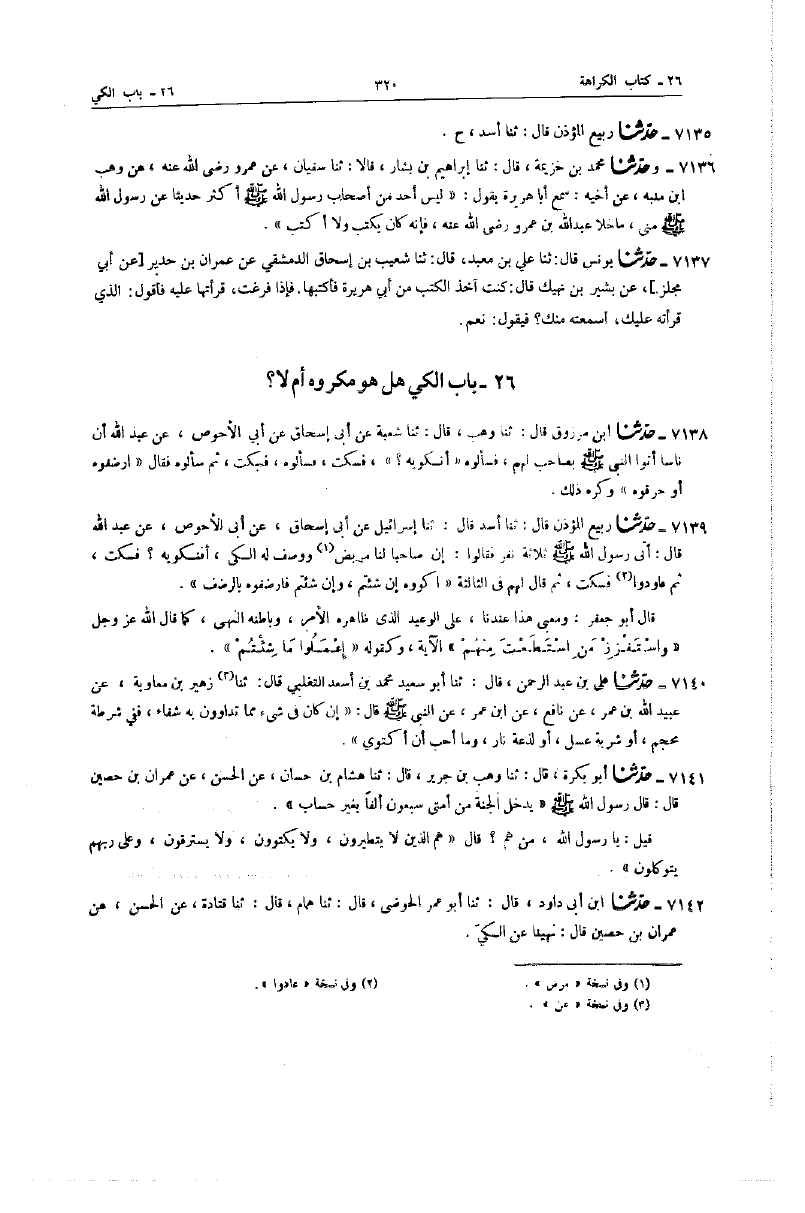 ٢٦ ـ كتاب الكراهة
٣٢٠
٢٦ ـ باب الكي
٧١٣٥ ـ حدثنا ربيع المؤذن قال : ثنا أسد ، ح .
٧١٣٦ ـ وحدثنا محمد بن خزيمة ، قال : ثنا إبراهيم بن بشار ، قالا : ثنا سفيان ، عن عمرو رضى الله عنه ، عن وهب
ابن منبه ، عن أخيه : سمع أبا هريرة يقول : « ليس أحد من أصحاب رسول الله ﷺ أكثر حديثا عن رسول الله
ﷺ منى ، ماخلا عبدالله بن عمرو رضى الله عنه ، فإنه كان يكتب ولا أكتب » .
٧١٣٧ ـ حدثنا يونس قال: ثنا علي بن معبد، قال: ثنا شعيب بن إسحاق الدمشقي عن عمران بن حدير [عن أبي
مجلز.]، عن بشير بن نهيك قال: كنت آخذ الكتب من أبي هريرة فأكتبها. فإذا فرغت، قرأتها عليه فأقول: الذي
قرأته عليك، أسمعته منك؟ فيقول: نعم.
٢٦ ـ باب الكي هل هو مكروه أم لا؟
٧١٣٨ ـ حدثنا ابن مرزوق قال : ثنا وهب ، قال : ثنا شعبة عن أبى إسحاق عن أبي الأحوص ، عن عبد الله أن
ناسا أتوا النبى ﷺ بصاحب لهم ، فسألوه « أنكويه ؟ » ، فسكت ، فسألوه ، فسكت ، ثم سألوه فقال « ارضفوه
أو حرقوه » وكره ذلك .
٧١٣٩ ـ حدثنا ربيع المؤذن قال : ثنا أسد قال : ثنا إسرائيل عن أبى إسحاق ، عن أبى الأحوص ، عن عبد الله
قال : أتى رسول الله ﷺ ثلاثة نفر فقالوا : إن صاحبا لنا مريض(١) ووصف له الكى ، أفنكويه ؟ فسكت ،
ثم عاودوا(٢) فسكت ، ثم قال لهم فى الثالثة « اكووه إن شئتم ، وإن شئتم فارضفوه بالرضف » .
قال أبو جعفر : ومعنى هذا عندنا ، على الوعيد الذى ظاهره الأمر ، وباطنه النهى ، كما قال الله عز وجل
« واسْتَفْزِزْ مَنِ اسْتَطَعْتَ مِنْهُمْ » الآية ، وكقوله « إعْمَلُوا مَا شِئْتُمْ » .
٧١٤٠ ـ حدثنا على بن عبد الرحمن ، قال : ثنا أبو سعيد محمد بن أسعد التغلبي قال: ثنا(٣) زهير بن معاوية ، عن
عبيد الله بن عمر ، عن نافع ، عن ابن عمر ، عن النبى ﷺ قال : « إن كان فى شىء مما تداوون به شفاء ، ففى شرطة
محجم ، أو شربة عسل ، أو لذعة نار ، وما أحب أن أكتوي » .
٧١٤١ ـ حدثنا أبو بكرة ، قال : ثنا وهب بن جرير ، قال : ثنا هشام بن حسان ، عن الحسن ، عن عمران بن حصين
قال : قال رسول الله ﷺ « يدخل الجنة من أمتى سبعون ألفاً بغير حساب » .
قيل : يا رسول الله ، من هم ؟ قال « هم الذين لا يتطيرون ، ولا يكتوون ، ولا يسترقون ، وعلى ربهم
يتوكلون » .
٧١٤٢ ـ حدثنا ابن أبى داود ، قال : ثنا أبو عمر الحوضى ، قال : ثنا همام ، قال : ثنا قتادة ، عن الحسن ، عن
عمران بن حصين قال : نهينا عن الكىّ .
(١) وفى نسخة « مرض » .
(٢) وفى نسخة « عادوا » .
(٣) وفى نسخة « عن » .